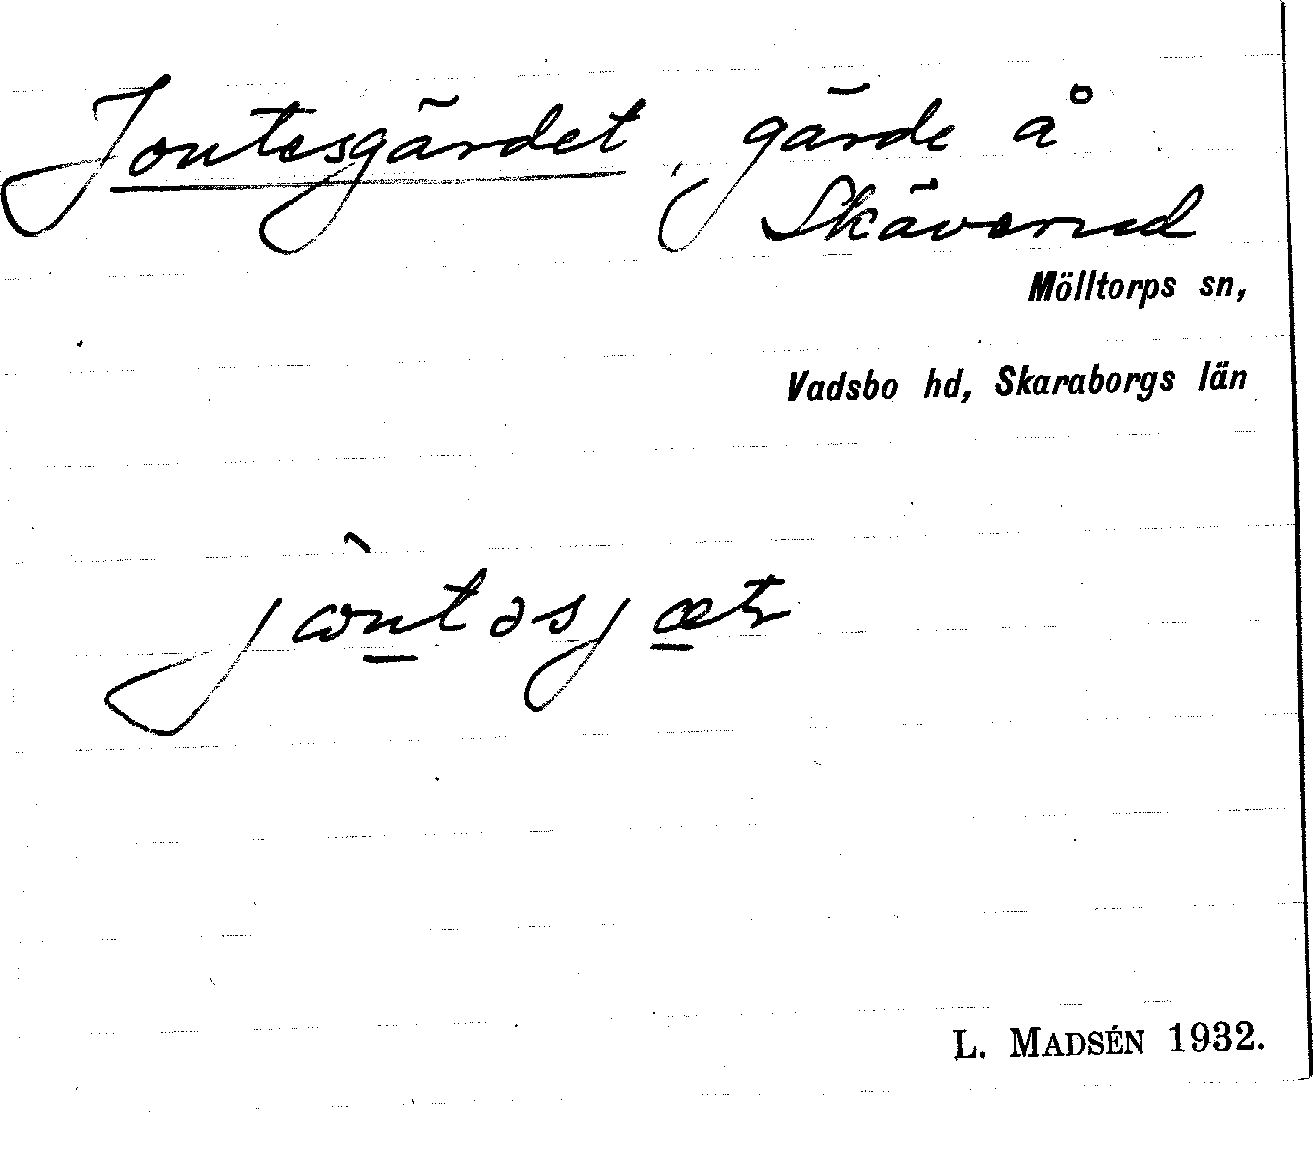 Jontesgärdet, gärde å
Skäverud
Mölltorps sn,
Vadsbo hd, Skaraborgs län
L. MADSÉN 1932.